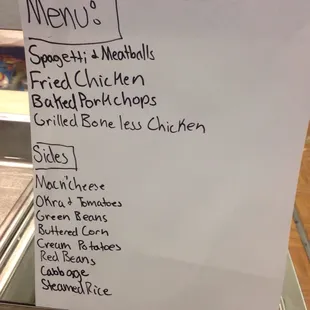 Menu:
Spagetti & Meatballs
Fried Chicken
Baked Porkchops
Grilled Boneless Chicken
Sides
Mac n' Cheese
Okra & Tomatoes
Green Beans
Buttered Corn
Cream Potatoes
Red Beans
Cabbage
Steamed Rice